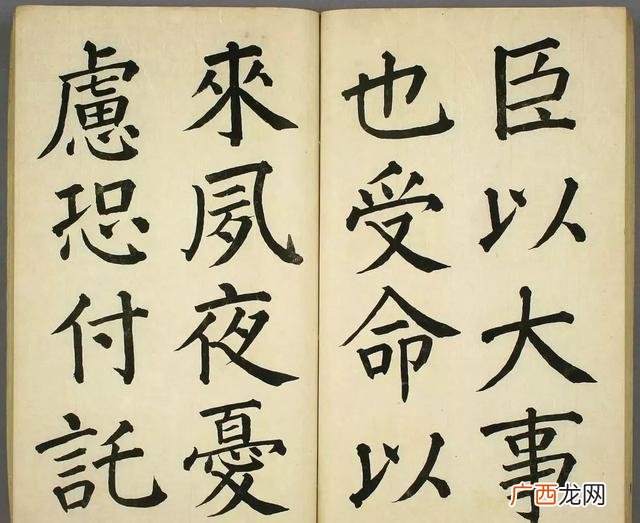 臣以大事
也受命以
來夙夜憂
慮恐付託
广西龙网